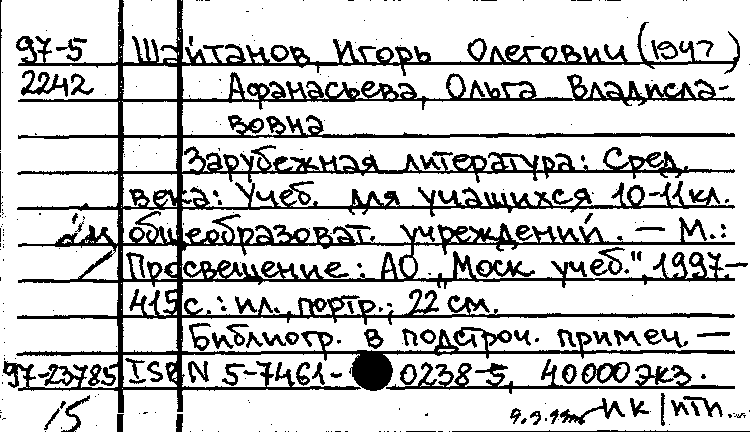 97-5 Шайтанов, Игорь Олегович (1947 )
2242 Афанасьева, Ольга Владисла-
вовна
Зарубежная литература: Сред.
века: Учеб. для учащихся 10-11кл.
общеобразоват. учреждений. — М.:
Просвещение: АО „Моск. учеб.", 1997.—
415с.: ил., портр.; 22 см.
Библиогр. в подстроч. примеч. —
97-23785 ISBN 5-7461-0238-5, 40000экз.
15 нк/нти.